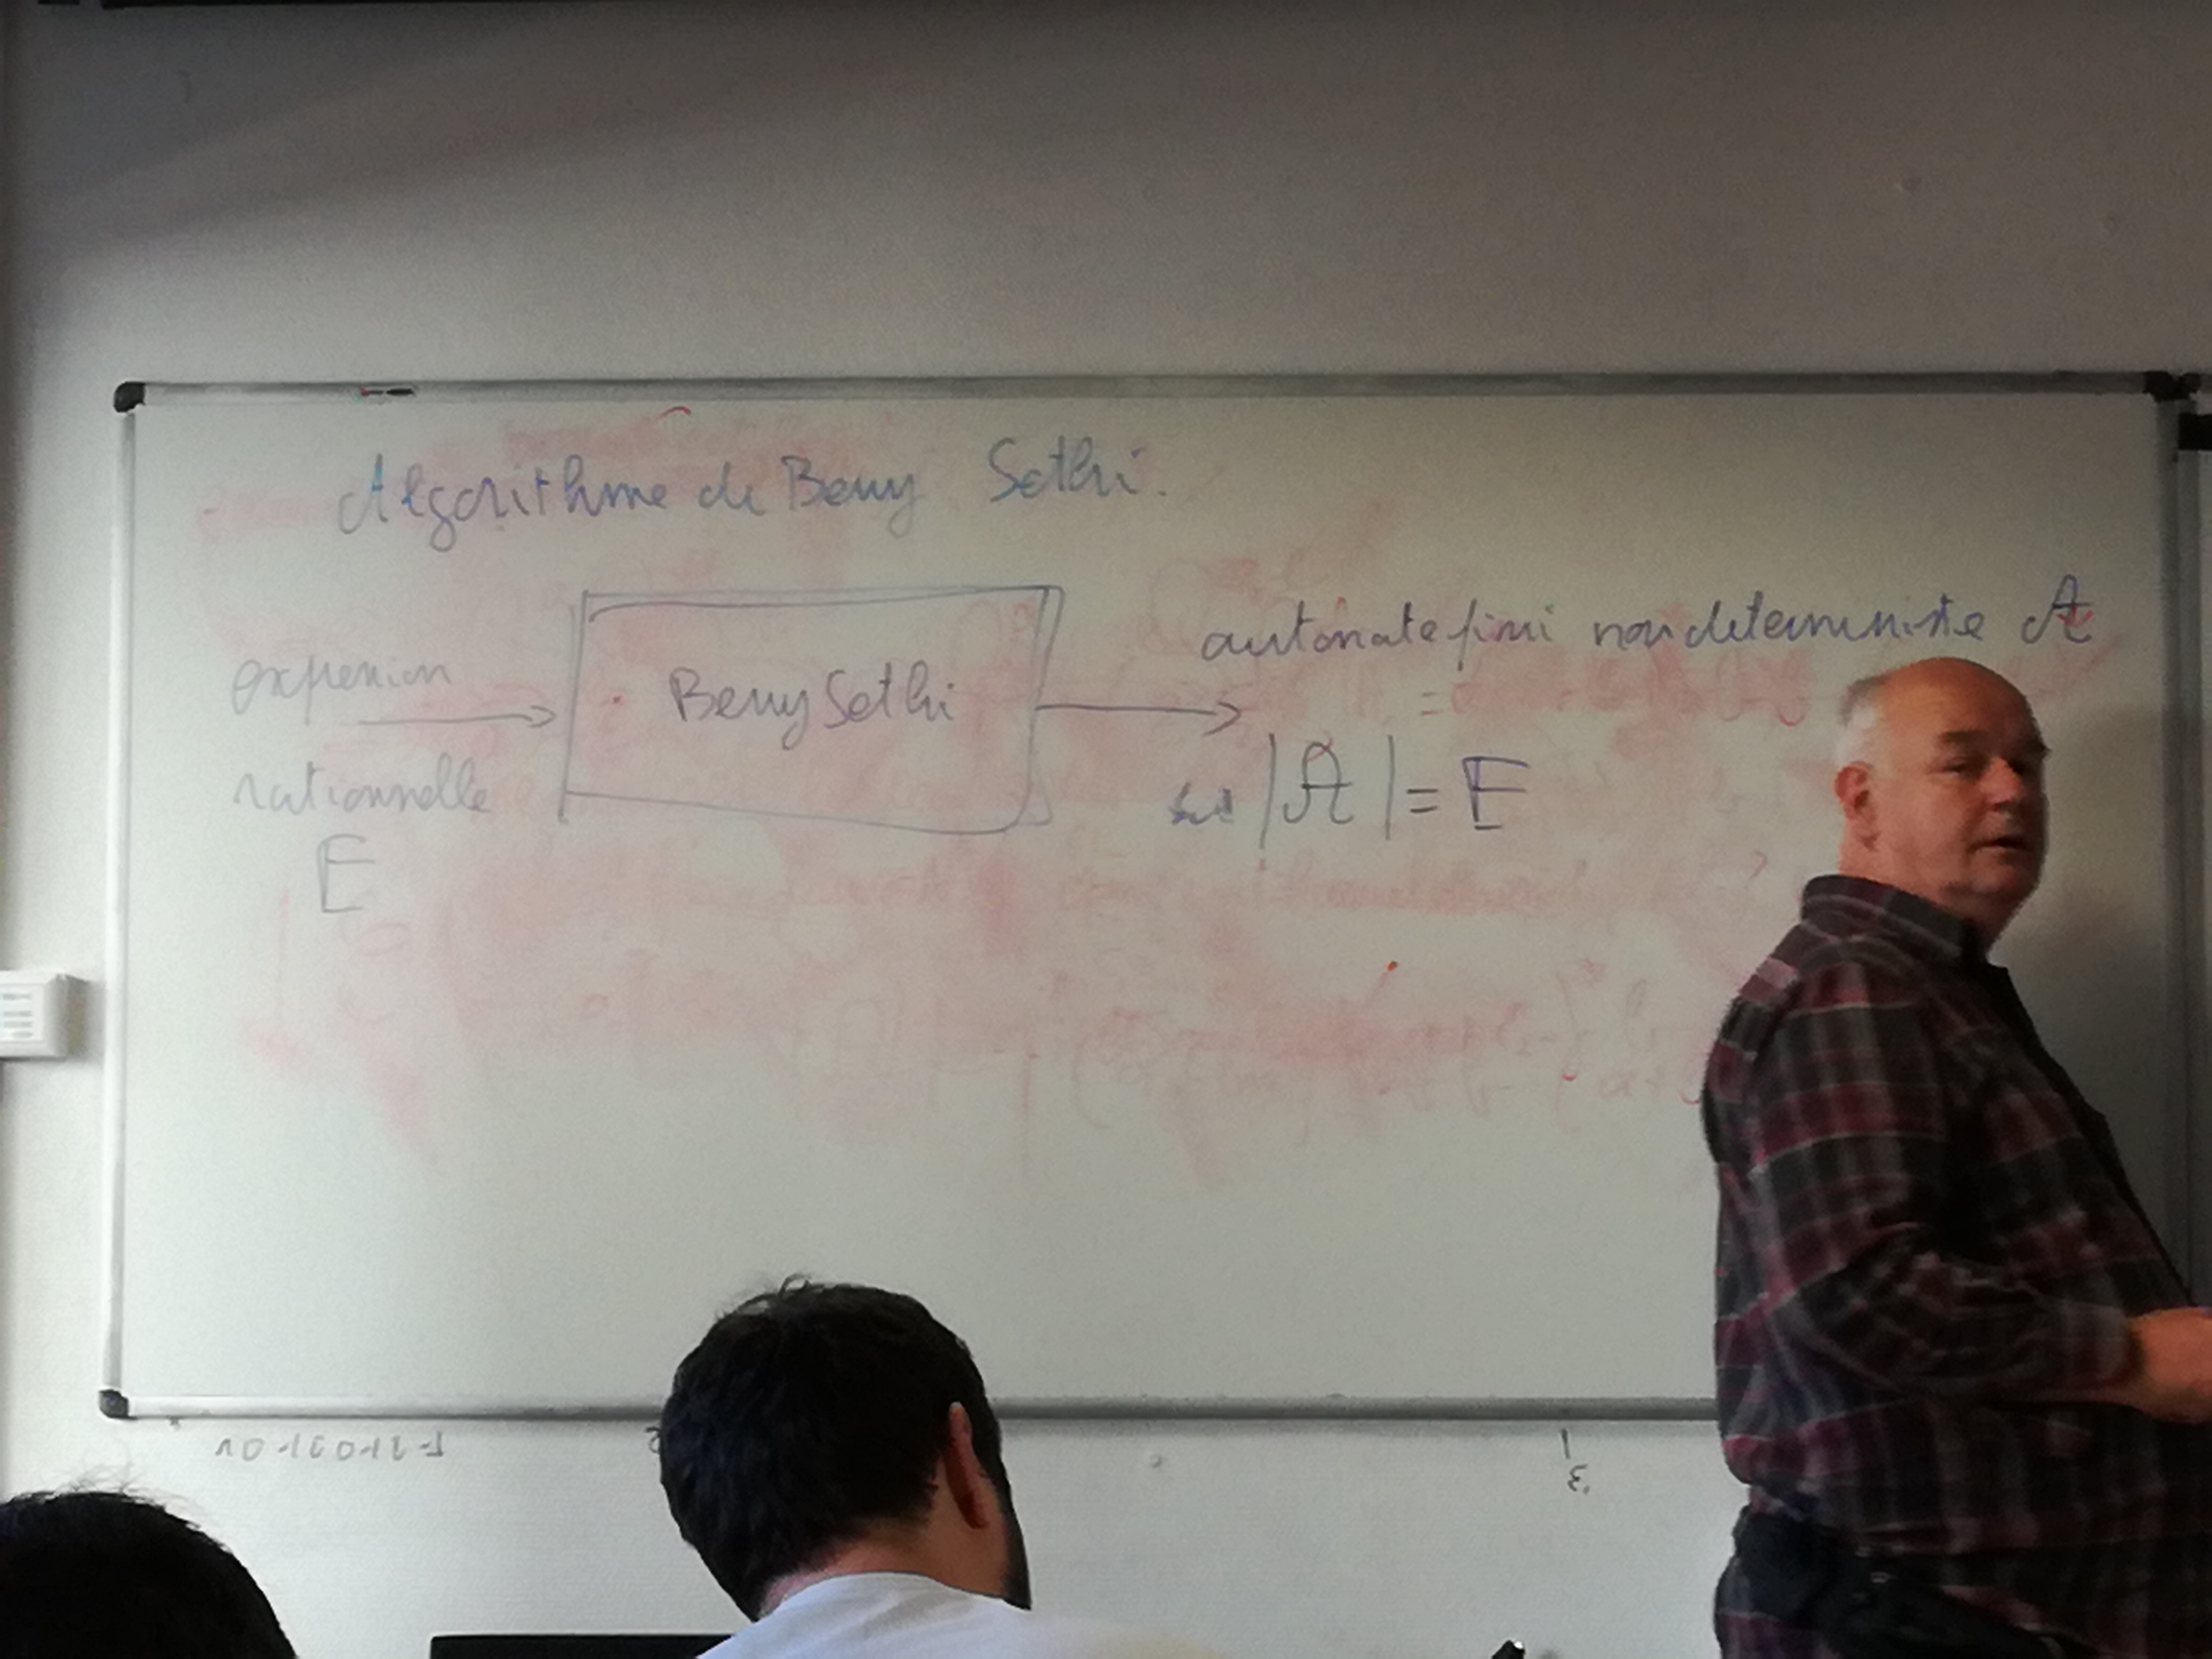 Algorithme de Berry Sethi.
expression
rationnelle
E
Berry Sethi
automate fini non deterministe A
|A| = E